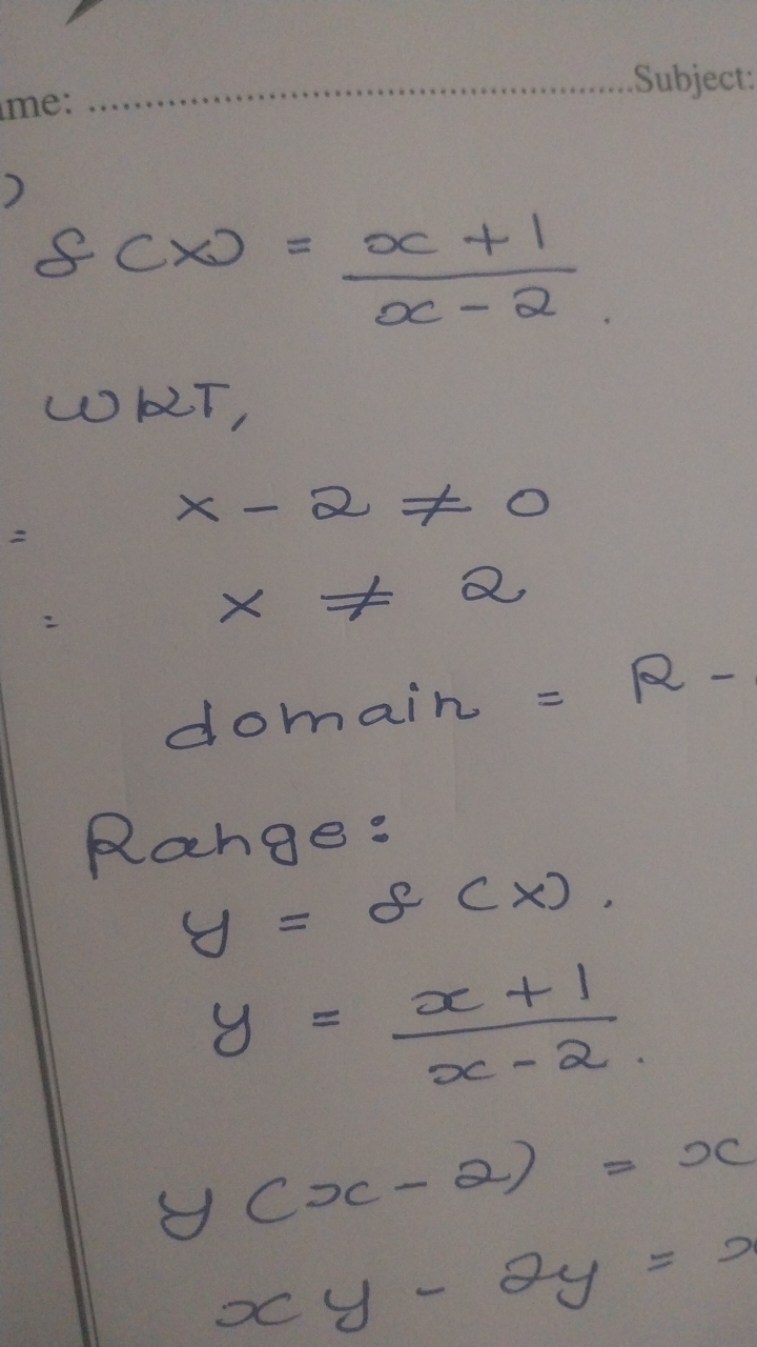 ame: ..........Subject:
)
f(x) = x + 1 / x - 2 .
WKT,
= x - 2 ≠ 0
= x ≠ 2
domain = R -
Range:
y = f(x).
y = x + 1 / x - 2 .
y(x - 2) = x
xy - 2y = x